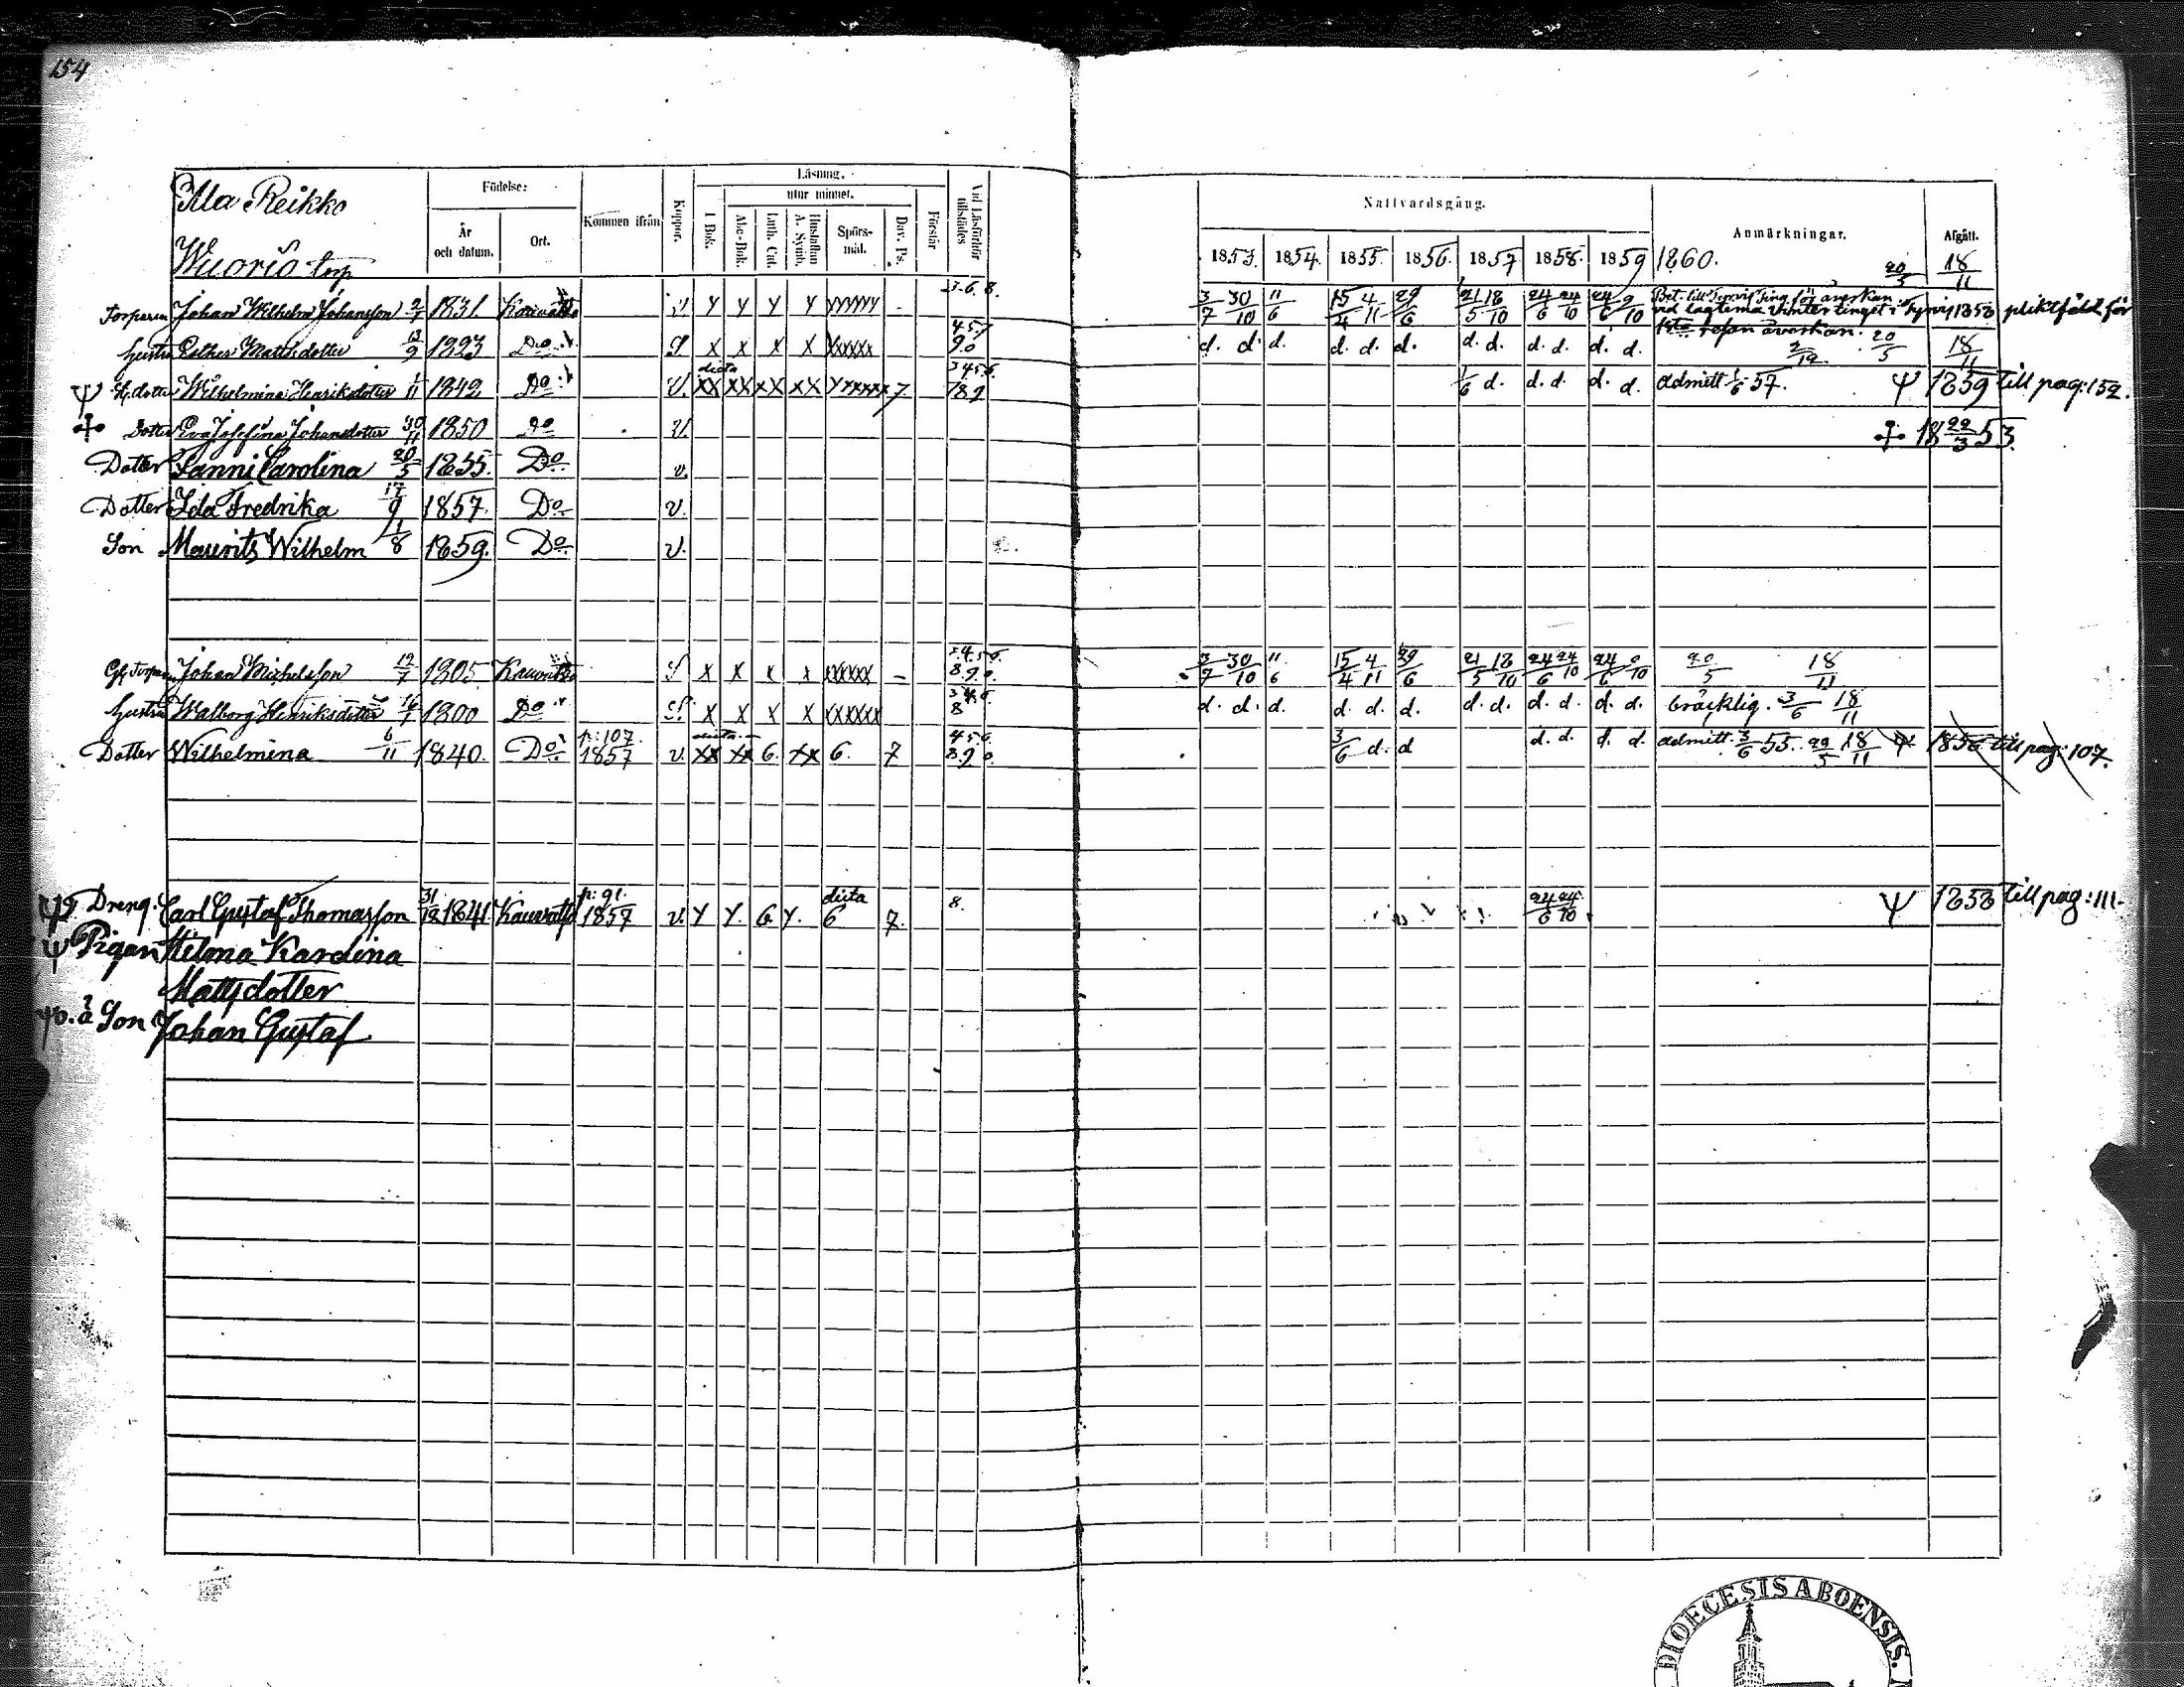 154
Ylla Reikko
Wuorio torp
Födelse:
År och datum.
Ort.
Kommen ifrån
Koppor.
Läsning.
utur minnet.
I Bok.
Abc-Bok.
Luth. Cat.
Hustaflan A. Symb.
Spörsmål.
Dav. Ps.
Förstår
Vid Läsförhör tillstädes
Nattvardsgång.
1853. 1854. 1855. 1856. 1857 1858. 1859 1860.
Anmärkningar.
Afgått.
20/5 18/11
Torparen Johan Wilhelm Johansson 2/7 1831. v Y Y Y Y YYYYYY - 3.6.8. 3/7 30/10 11/6 15/4 4/11 29/6 21/5 18/10 24/6 24/10 24/6 9/10
vid lagtima Vinter tinget i Tyrvis 1858 pliktfäld för
1sta resan åverkan.
hustru Esther Mattsdotter 13/9 1823 Do S X X X X XXXXX 457 90 d. d. d. d. d. d. d. d. d. d. d. d. 20/5 18/11
H.dotter Wilhelmina Henriksdotter 1/11 1842 Do v. dicta XX XX XX XX YXXXXX 7. 3456 789 1/6 d. d. d. d. d. admitt 1/6 57. Ψ 1859 till pag: 152.
Dotter Eva Josefina Johansdotter 30/11 1850 Do v. 18 22/3 53.
Dotter Fanni Carolina 20/5 1855. Do v.
Dotter Ida Fredrika 17/9 1857. Do v.
Son Maurits Wilhelm 1/8 1859. Do v.
Johan Michelsson 12/7 1805 S X X X X XXXXX - 8.9.0. 3/7 30/10 11/6 15/4 4/11 29/6 21/5 18/10 24/6 24/10 24/6 9/10 20/5 18/11
hustru Walborg Henriksdotter 1800 Do S. X X X X XXXXXX 8 d. d. d. d. d. d. d. d. d. d. d. d. bräcklig. 3/6 18/11
Dotter Wilhelmina 6/11 1840. Do p: 107. 1857 v. dicta XX XX 6. XX 6. 7 456 8.9.0. 3/6 d. d d. d. d. d. admitt. 3/6 55. 18/11 Ψ 1856 till pag: 107.
Dreng. Carl Gustaf Thomasson 31/12 1841. p: 91. 1857 v. Y Y. 6 Y. dicta 6 7. 8. 24/6 24/10 Ψ 1858 till pag: 111.
Ψ Pigan Hilma Karolina
Mattsdotter
Son Johan Gustaf
DIOECESIS ABOENSIS.